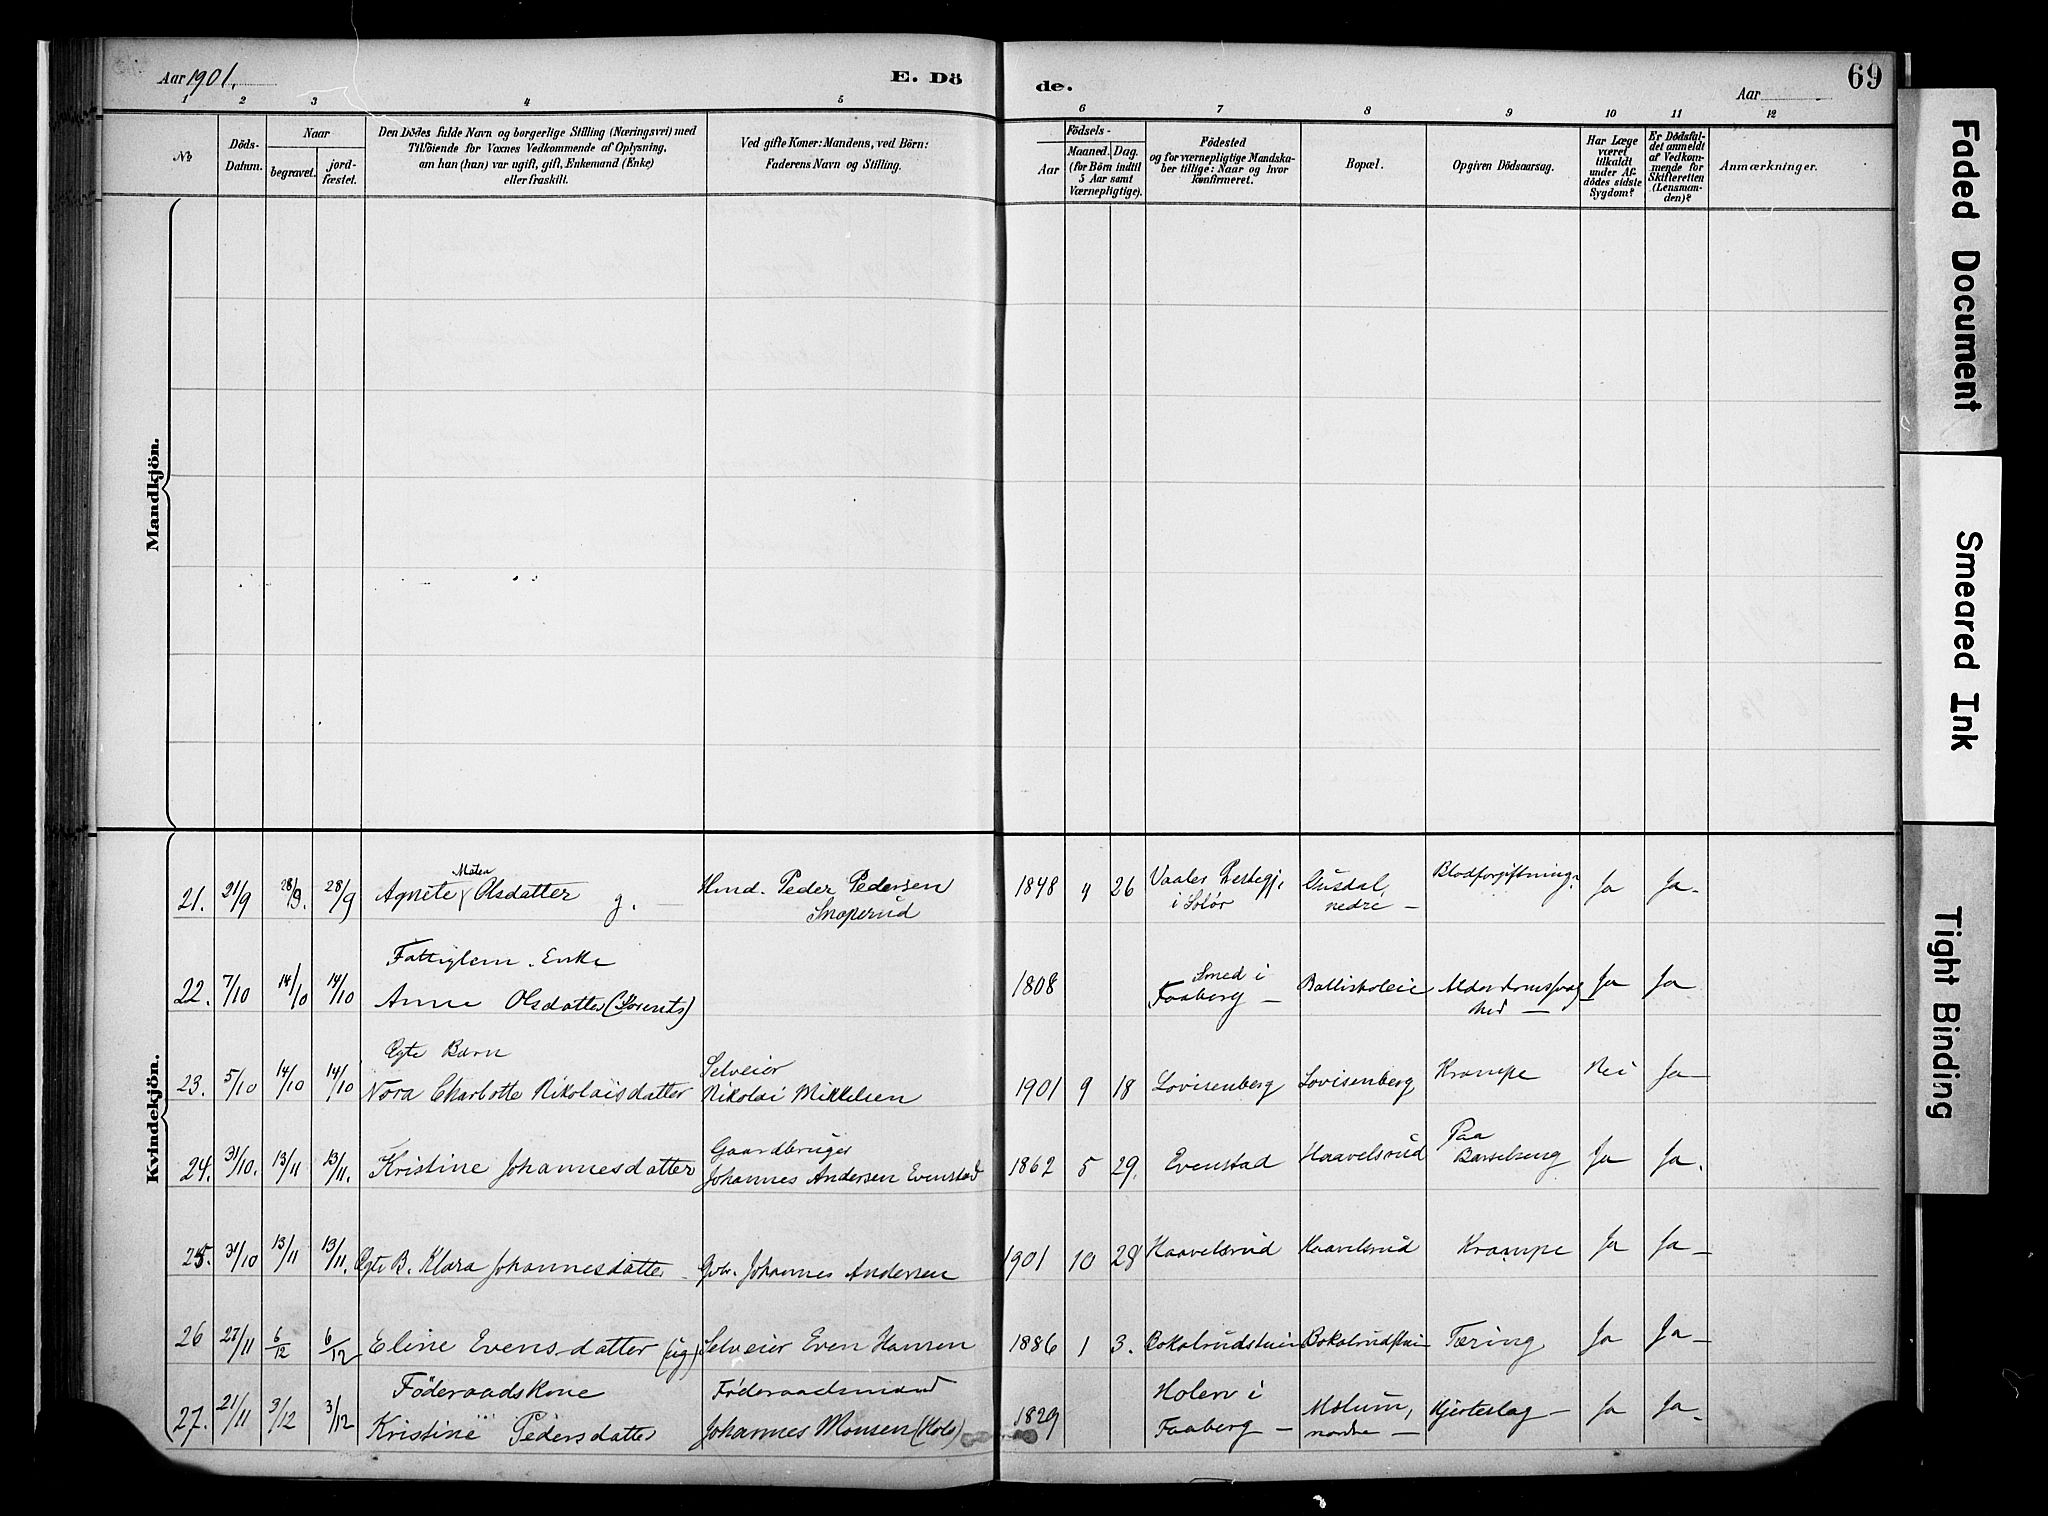 Aar 1901.
E. Dö
de.
Aar
69
1 2 3 4 5 6 7 8 9 10 11 12
No
Döds-
Datum.
Naar
begravet.
jord-
fæstet.
Den Dödes fulde Navn og borgerlige Stilling (Næringsvei) med
Tilföiende for Voxnes Vedkommende af Oplysning,
om han (hun) var ugift, gift, Enkemand (Enke)
eller fraskilt.
Ved gifte Koner: Mandens, ved Börn:
Faderens Navn og Stilling.
Födsels-
Aar
Maaned. Dag.
(for Börn indtil
5 Aar samt
Værnepligtige).
Födested
og for værnepligtige Mandska-
ber tillige: Naar og hvor
konfirmeret.
Bopæl.
Opgiven Dödsaarsag.
Har Læge
været
tilkaldt
under Af-
dödes sidste
Sygdom?
Er Dödsfal-
det anmeldt
af Vedkom-
mende for
Skifteretten
(Lensman-
den)?
Anmærkninger.
Mandkjön.
Kvindekjön.
21. 21/9 28/9. 28/9 Agnete Olsdatter g. — Hmd. Peder Pedersen
1848 4 26 Vaaler Prestegj. nedre — Blodforgiftning. Ja Ja-
i Solør
Fattiglem. Enke
22. 7/10 14/10 14/10 Anne Olsdatter
1808 Smed i
Faaberg — Alderdomssvag-
hed — Ja Ja
Ægte Barn
23. 5/10 14/10 14/10 Nora Charlotte Nikolaisdatter
Selveier
Nikolai Mikkelsen
1901 9 18 Lovisenberg Lovisenberg Krampe Nei Ja—
24. 31/10. 13/11 13/11. Kristine Johannesdatter
Gaardbruger
Johannes Andersen Evenstad
1862 5 29. Evenstad Haavelsrud Paa
Barselseng Ja Ja.
25. 31/10 13/11 13/11. Ægte B. Klara Johannesdatter - Gbr. Johannes Andersen
1901 10 28 Haavelsrud Haavelsrud Krampe Ja Ja—
26 27/11 6/12 6/12 Eline Evensdatter (ug) Selveier Even Hansen
1886 1 3. Tæring Ja Ja—
Føderaadskone
27. 21/11 3/12 3/12 Kristine Pedersdatter
Føderaadsmand
Johannes Monsen
1829 Holen i
Faaberg — Molum,
nordre — Hjerteslag — Ja Ja-
Faded Document
Smeared Ink
Tight Binding